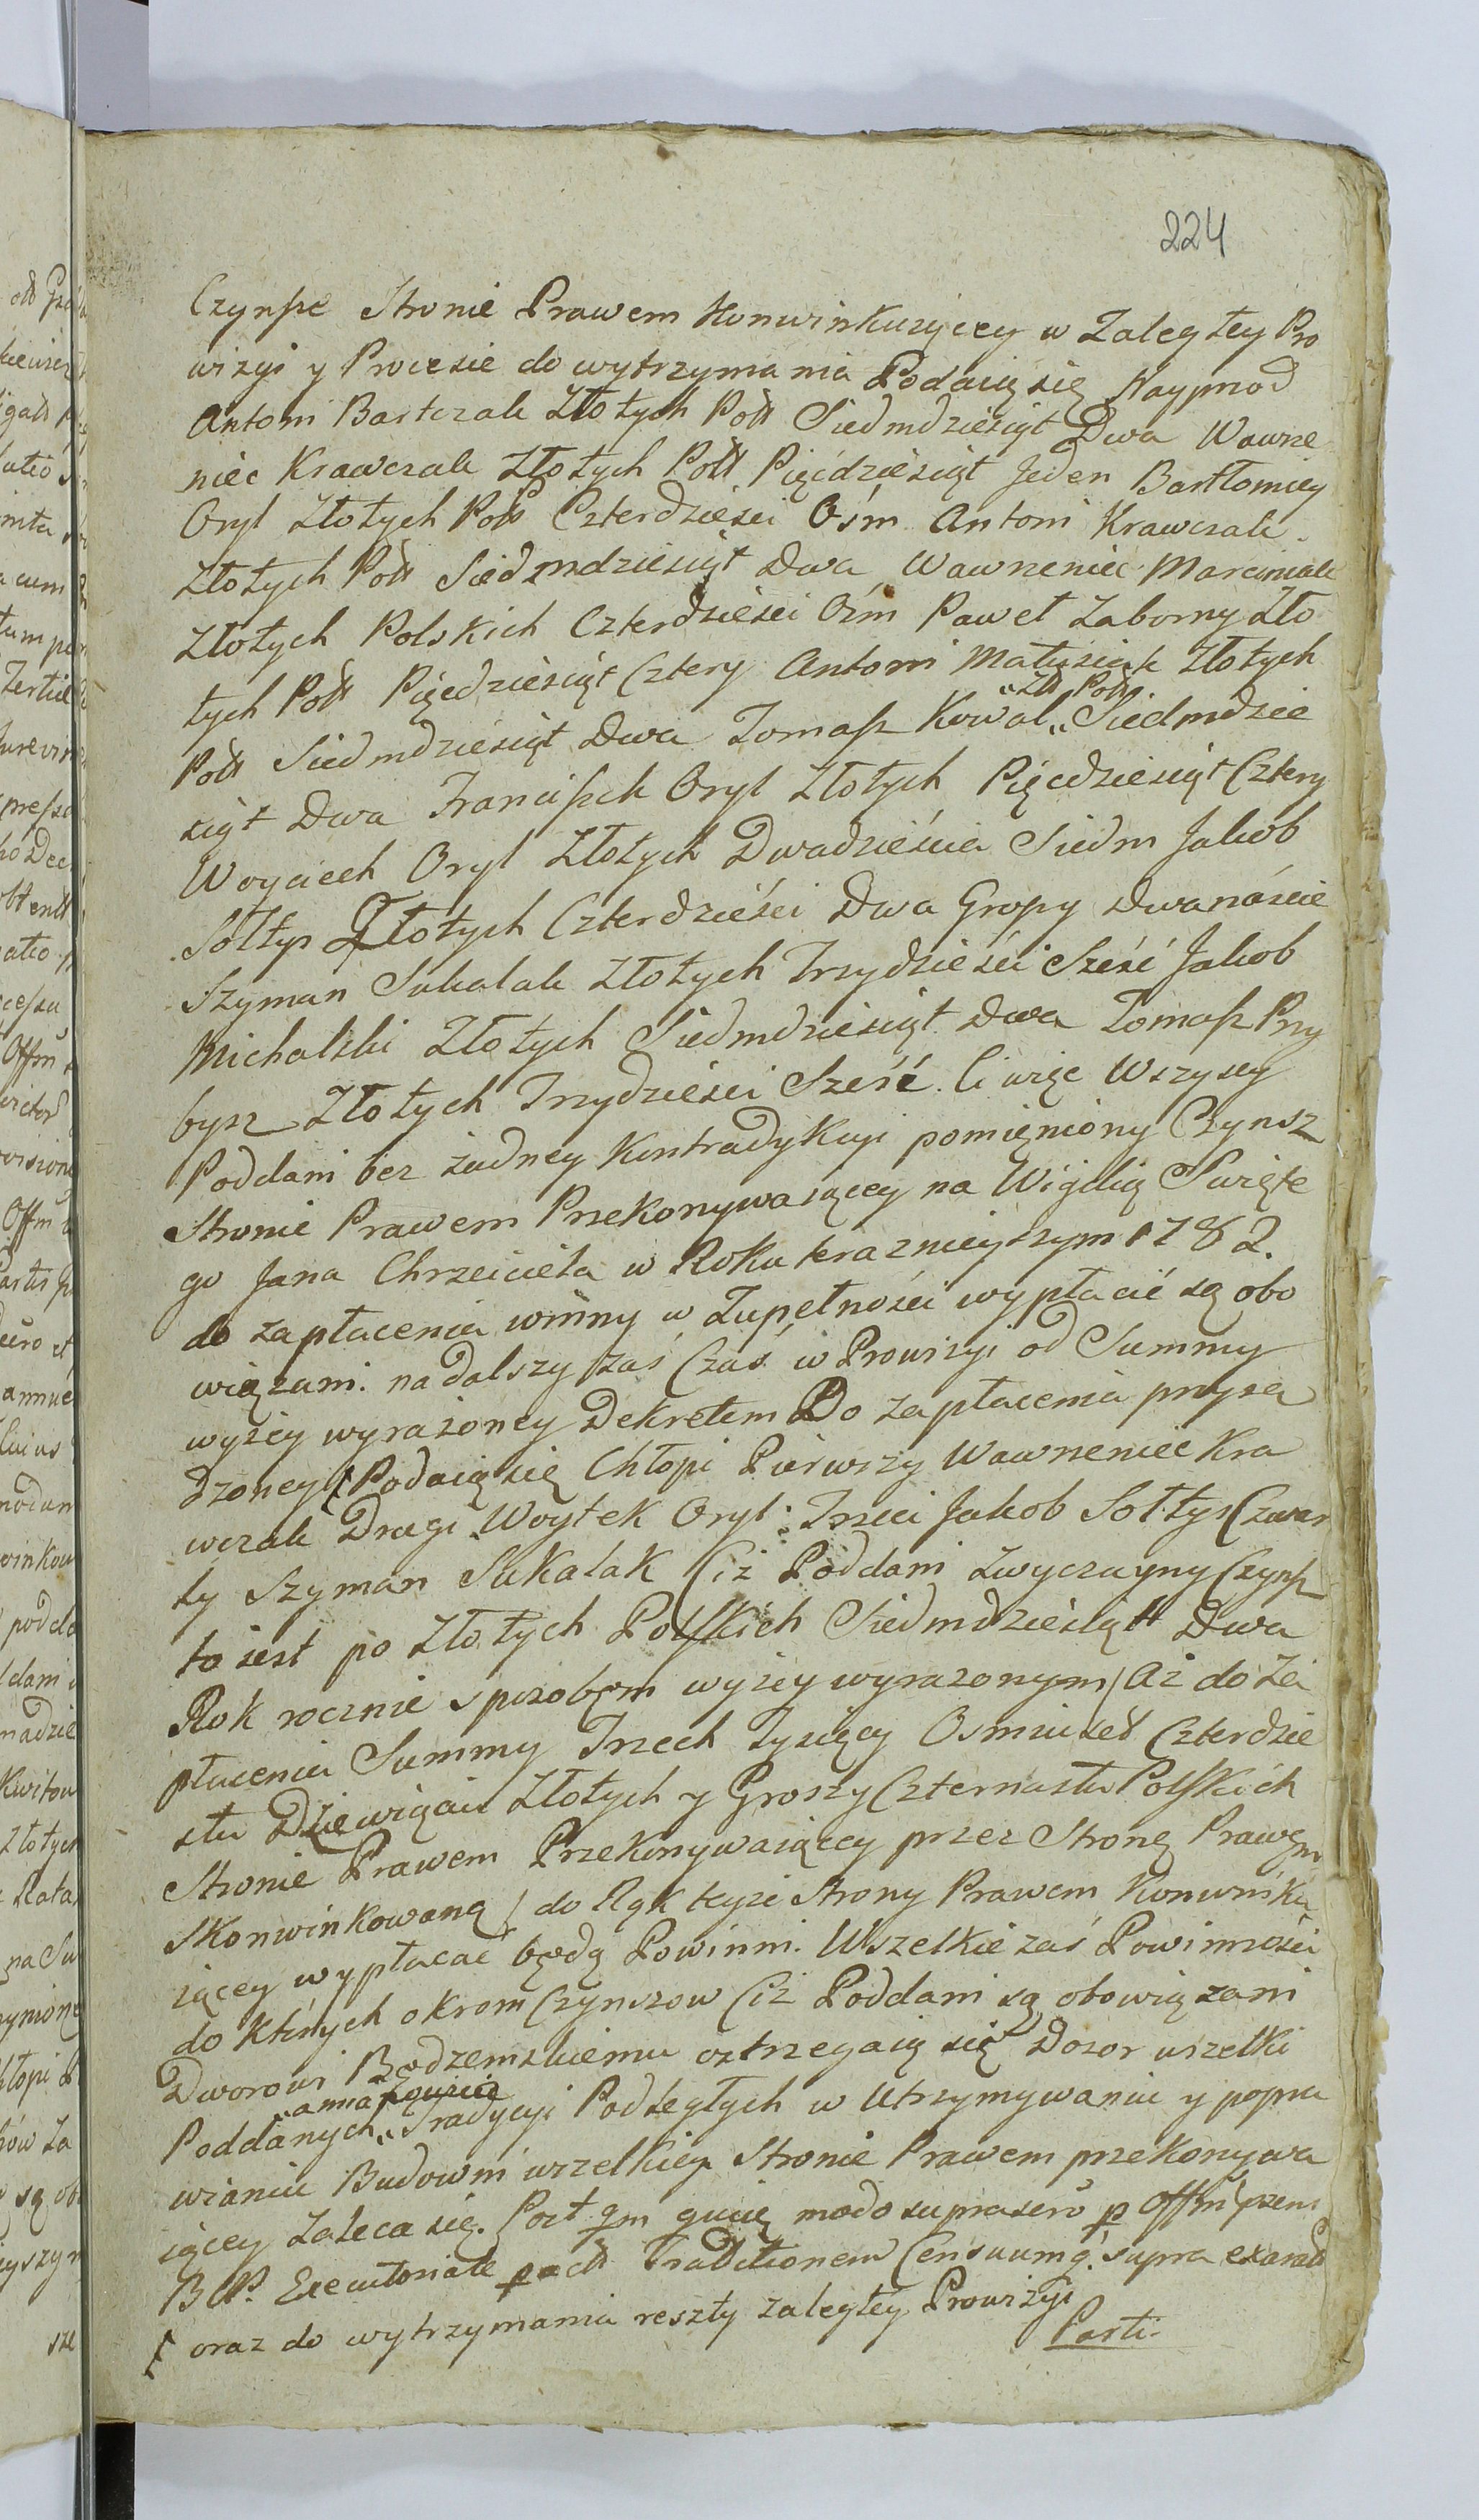 224
Czynsze Stronie Prawem Konwinkuiącey w Zaległey Pro
wizyi y Procesie do wytrzymania Podaią się Nayprzod
Antoni Bartczak Złotych Polł Siedmdziesiąt Dwa Wawrze
niec Krawczak Złotych Polł Pięćdziesiąt Jeden Bartłomiey
Oryl Złotych Pols Czterdziesci Ośm Antoni Krawczak
Złotych Polł Siedmdziesiąt Dwa Wawrzeniec Marciniak
Złotych Polskich Czterdziesci Ośm Paweł Zaborny Zło
tych Polł Pięcdziesiąt Cztery Antoni Matysiak Złotych
Polł Siedmdziesiąt Dwa Tomasz Kowal „Złł Polł„ Siedmdzie
siąt Dwa Franciszek Oryl Złotych Pięcdziesiąt Cztery
Woyciech Oryl Złotych Dwadzieścia Siedm Jakób
Sołtys Złotych Czterdzieści Dwa Groszy Dwanáście
Szyman Sukalak Złotych Trzydzieści Sześć Jakob
Michalski Złotych Siedmdziesiąt Dwa Tomasz Przy
bysz Złotych Trzydziesci Sześć. Ci więc Wszyscy
Poddani bez żadney Kontradykcyi pomięniony Czynsz
Stronie Prawem Przekonywaiącey na Wigilią Swięte
go Jana Chrzciciela w Roku teraznieyszym 1782.
do zapłacenia winny w Zupełności wypłacić są obo
wiązani. na dalszy zaś Czas w Prowizyi od Summy
wyżey wyrażoney Dekretem Do zapłacenia przysą
dzoney [ Podaią się Chłopi Pierwszy Wawrzeniec Kra
wczak Drugi Woytek Oryl: Trzeci Jakob Sołtys Czwar
ty Szyman Sukalak Ciż Poddani Zwyczayny Czynsz
to iest po Złotych Polskich Siedmdziesiątt Dwa
Rok rocznie sposobem wyżey wyrazonym / Aż do Za
płacenia Summy Trzech Tysięcy Osmiuset Czterdzie
stu Dziewięciu Złotych y Groszy Czternastu Polskich
Stronie Prawem Przekonywaiącey przez Stronę Prawem
Skonwinkowaną / do Rąk teyże Strony Prawem Konwinku
iącey wypłacać będą Powinni. Wszelkie zaś Powinności
do których okrom Czynszow Ciż Poddani są obowiązani
Dworowi Będzemskiemu ostrzegaią się Dozor wszelki
Poddanych „ Tradycyi Podległych w Utrzymywaniu y popra
wianiu Budowni wszelkiey Stronie Prawem przekonywa
iącey Zaleca się. Post qm quię modo supraserō p Offm przm
B CP. Executoriale Traditionem Censuum q. supra exarat
[ oraz do wytrzymania reszty zaległey Prowizyi
Parti